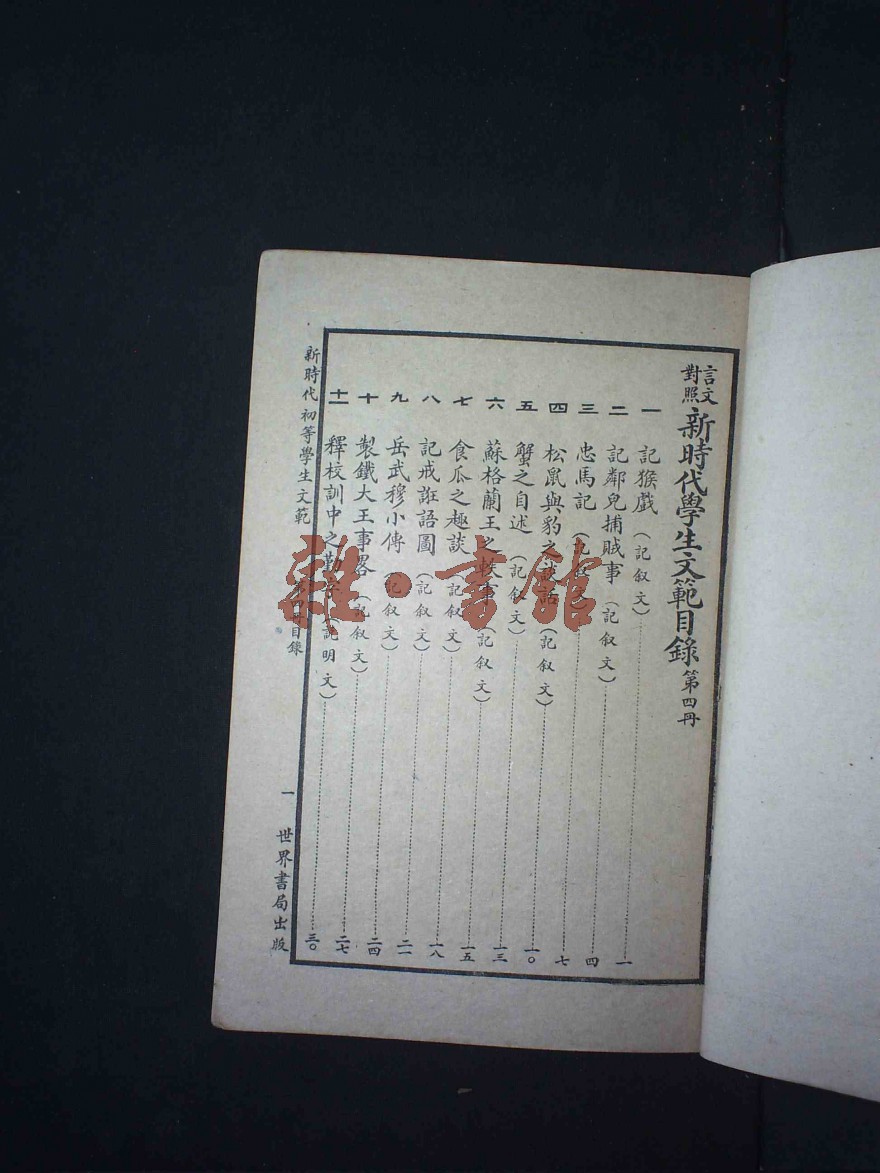 言文對照新時代學生文範目錄 第四册
一 記猴戲(記叙文) 一
二 記鄰兒捕賊事(記叙文) 四
三 忠馬記(記叙文) 七
四 松鼠與豹之談話(記叙文) 一〇
五 蟹之自述(記叙文) 一三
六 蘇格蘭王之軼事(記叙文) 一五
七 食瓜之趣談(記叙文) 一八
八 記戒誑語圖(記叙文) 二一
九 岳武穆小傳(記叙文) 二四
十 製鐵大王事畧(記叙文) 二七
十一 釋校訓中之勤字(說明文) 三〇
新時代初等學生文範 第四册目錄 一 世界書局出版
雜·書館